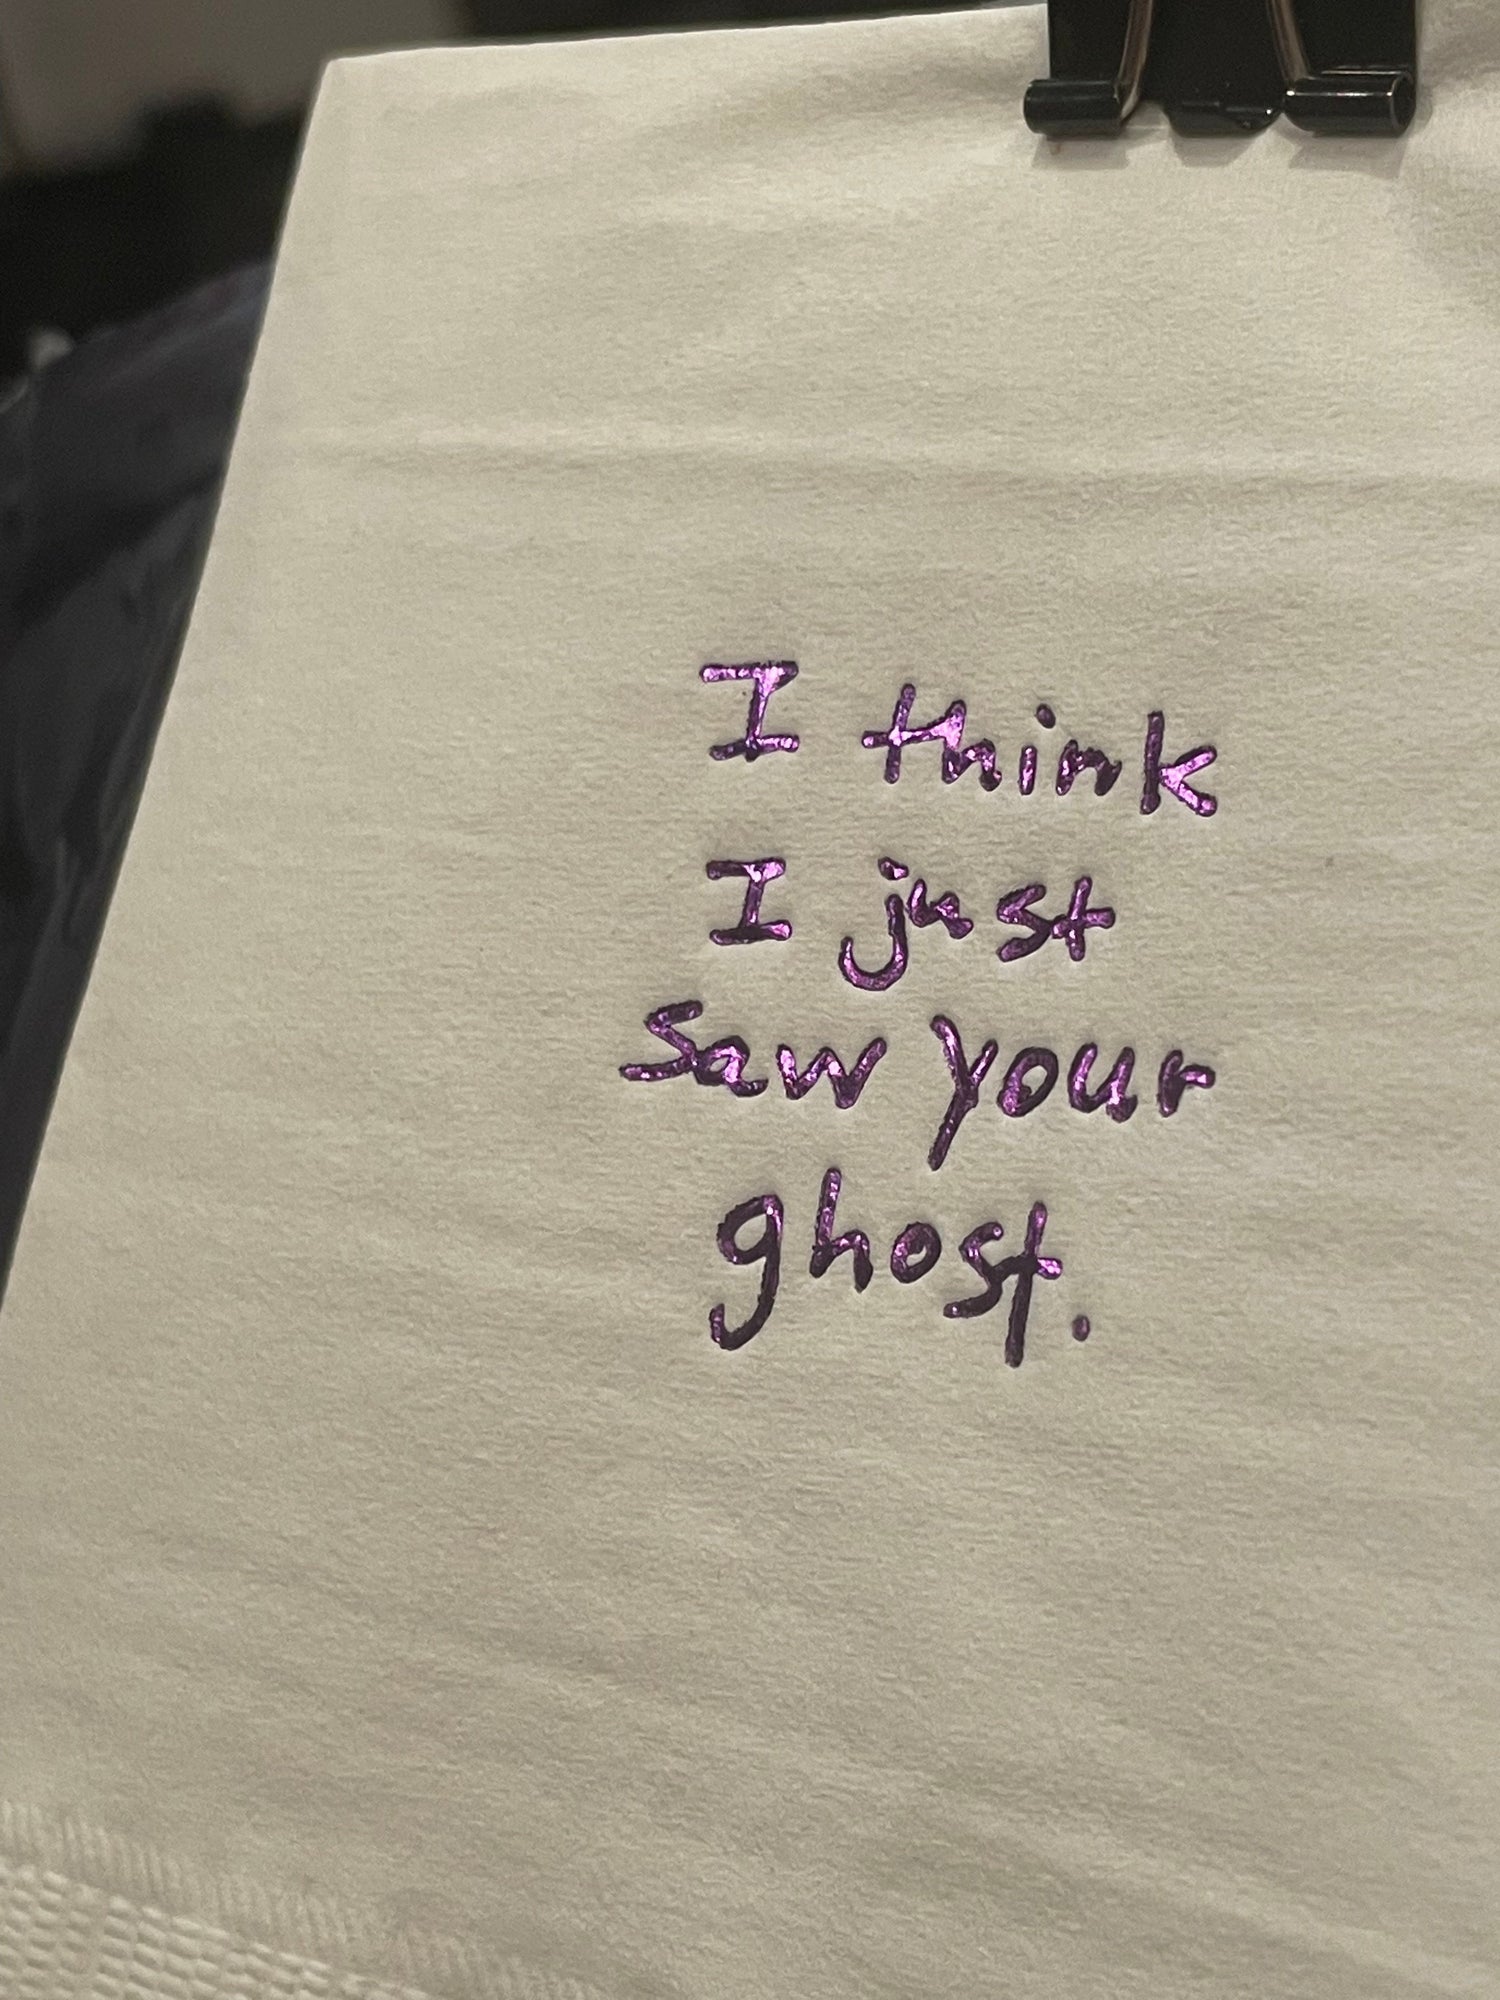 I think
I just
saw your
ghost.